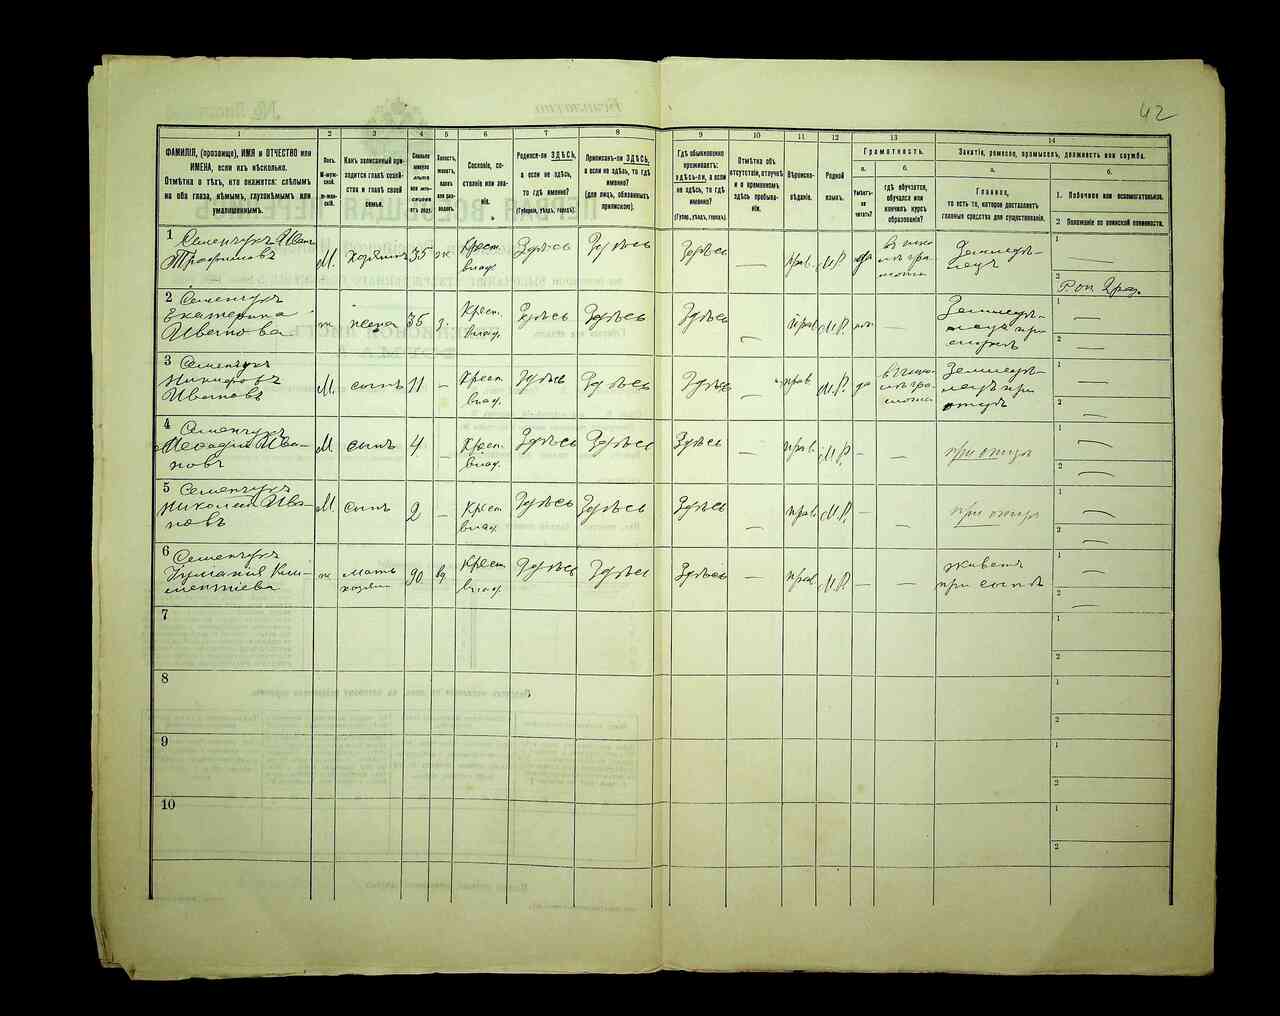 42
1
2
3
4
5
6
7
8
9
10
11
12
13
14
ФАМИЛІЯ, (прозвище), ИМЯ и ОТЧЕСТВО или
ИМЕНА, если ихъ нѣсколько.
Отмѣтка о тѣхъ, кто окажется: слѣпымъ
на оба глаза, нѣмымъ, глухонѣмымъ или
умалишеннымъ.
Полъ.
М-муж-
ской.
Ж-жен-
скій.
Какъ записанный при-
ходится главѣ хозяй-
ства и главѣ своей
семьи.
Сколько
минуло
лѣтъ
или мѣ-
сяцевъ
отъ роду.
Холостъ,
женатъ,
вдовъ
или раз-
веденъ.
Сословіе, со-
стояніе или зва-
ніе.
Родился-ли ЗДѢСЬ,
а если не здѣсь,
то гдѣ именно?
(Губернія, уѣздъ, городъ).
Приписанъ-ли ЗДѢСЬ,
а если не здѣсь, то гдѣ
именно?
(для лицъ, обязанныхъ
припискою).
Гдѣ обыкновенно
проживаетъ:
здѣсь-ли, а если
не здѣсь, то гдѣ
именно?
(Губер., уѣздъ, городъ).
Отмѣтка объ
отсутствіи, отлучкѣ
и о временномъ
здѣсь пребыва-
ніи.
Вѣроиспо-
вѣданіе.
Родной
языкъ.
Грамотность.
а.
б.
Умѣетъ-
ли
читать?
гдѣ обучается,
обучался или
кончилъ курсъ
образованія?
Занятіе, ремесло, промыселъ, должность или служба.
а.
б.
Главное,
то есть то, которое доставляетъ
главныя средства для существованія.
1. Побочное или вспомогательное.
2 Положеніе по воинской повинности.
1 Семенчукъ Иванъ
Трофимовъ
М. хозяинъ 35 ж. Крест. владѣ. Здѣсь Здѣсь Здѣсь — прав. М.Р. да
Земледѣ-
лецъ
1 —
2
2 Семенчукъ
Екатерина
Иванова
ж жена 35 з. Крест. влад. Здѣсь Здѣсь Здѣсь — прав. М.Р. —
Земледѣ-
1 —
2 —
3 Семенчукъ
Никифоръ
Ивановъ
М. сынъ 11 — Крест. влад. Здѣсь Здѣсь Здѣсь — прав. М.Р. да
Земледѣ-
лецъ при
отцѣ
1 —
2 —
4 Семенчукъ
Ива-
новъ
М сынъ 4 — Крест. влад. Здѣсь Здѣсь Здѣсь — прав. М.Р. — — при отцѣ
1 —
2 —
5 Семенчукъ
Николай Ива-
новъ
М. сынъ 2 — Крест. влад. Здѣсь Здѣсь Здѣсь — прав. М.Р. — — при отцѣ
1 —
2 —
6 Семенчукъ
Кли-
ментіева
ж мать
хозяина
90 вд Крест. влад. Здѣсь Здѣсь Здѣсь — прав. М.Р. — —
живетъ
при сынѣ
1 —
2 —
7
1
2
8
1
2
9
1
2
10
1
2